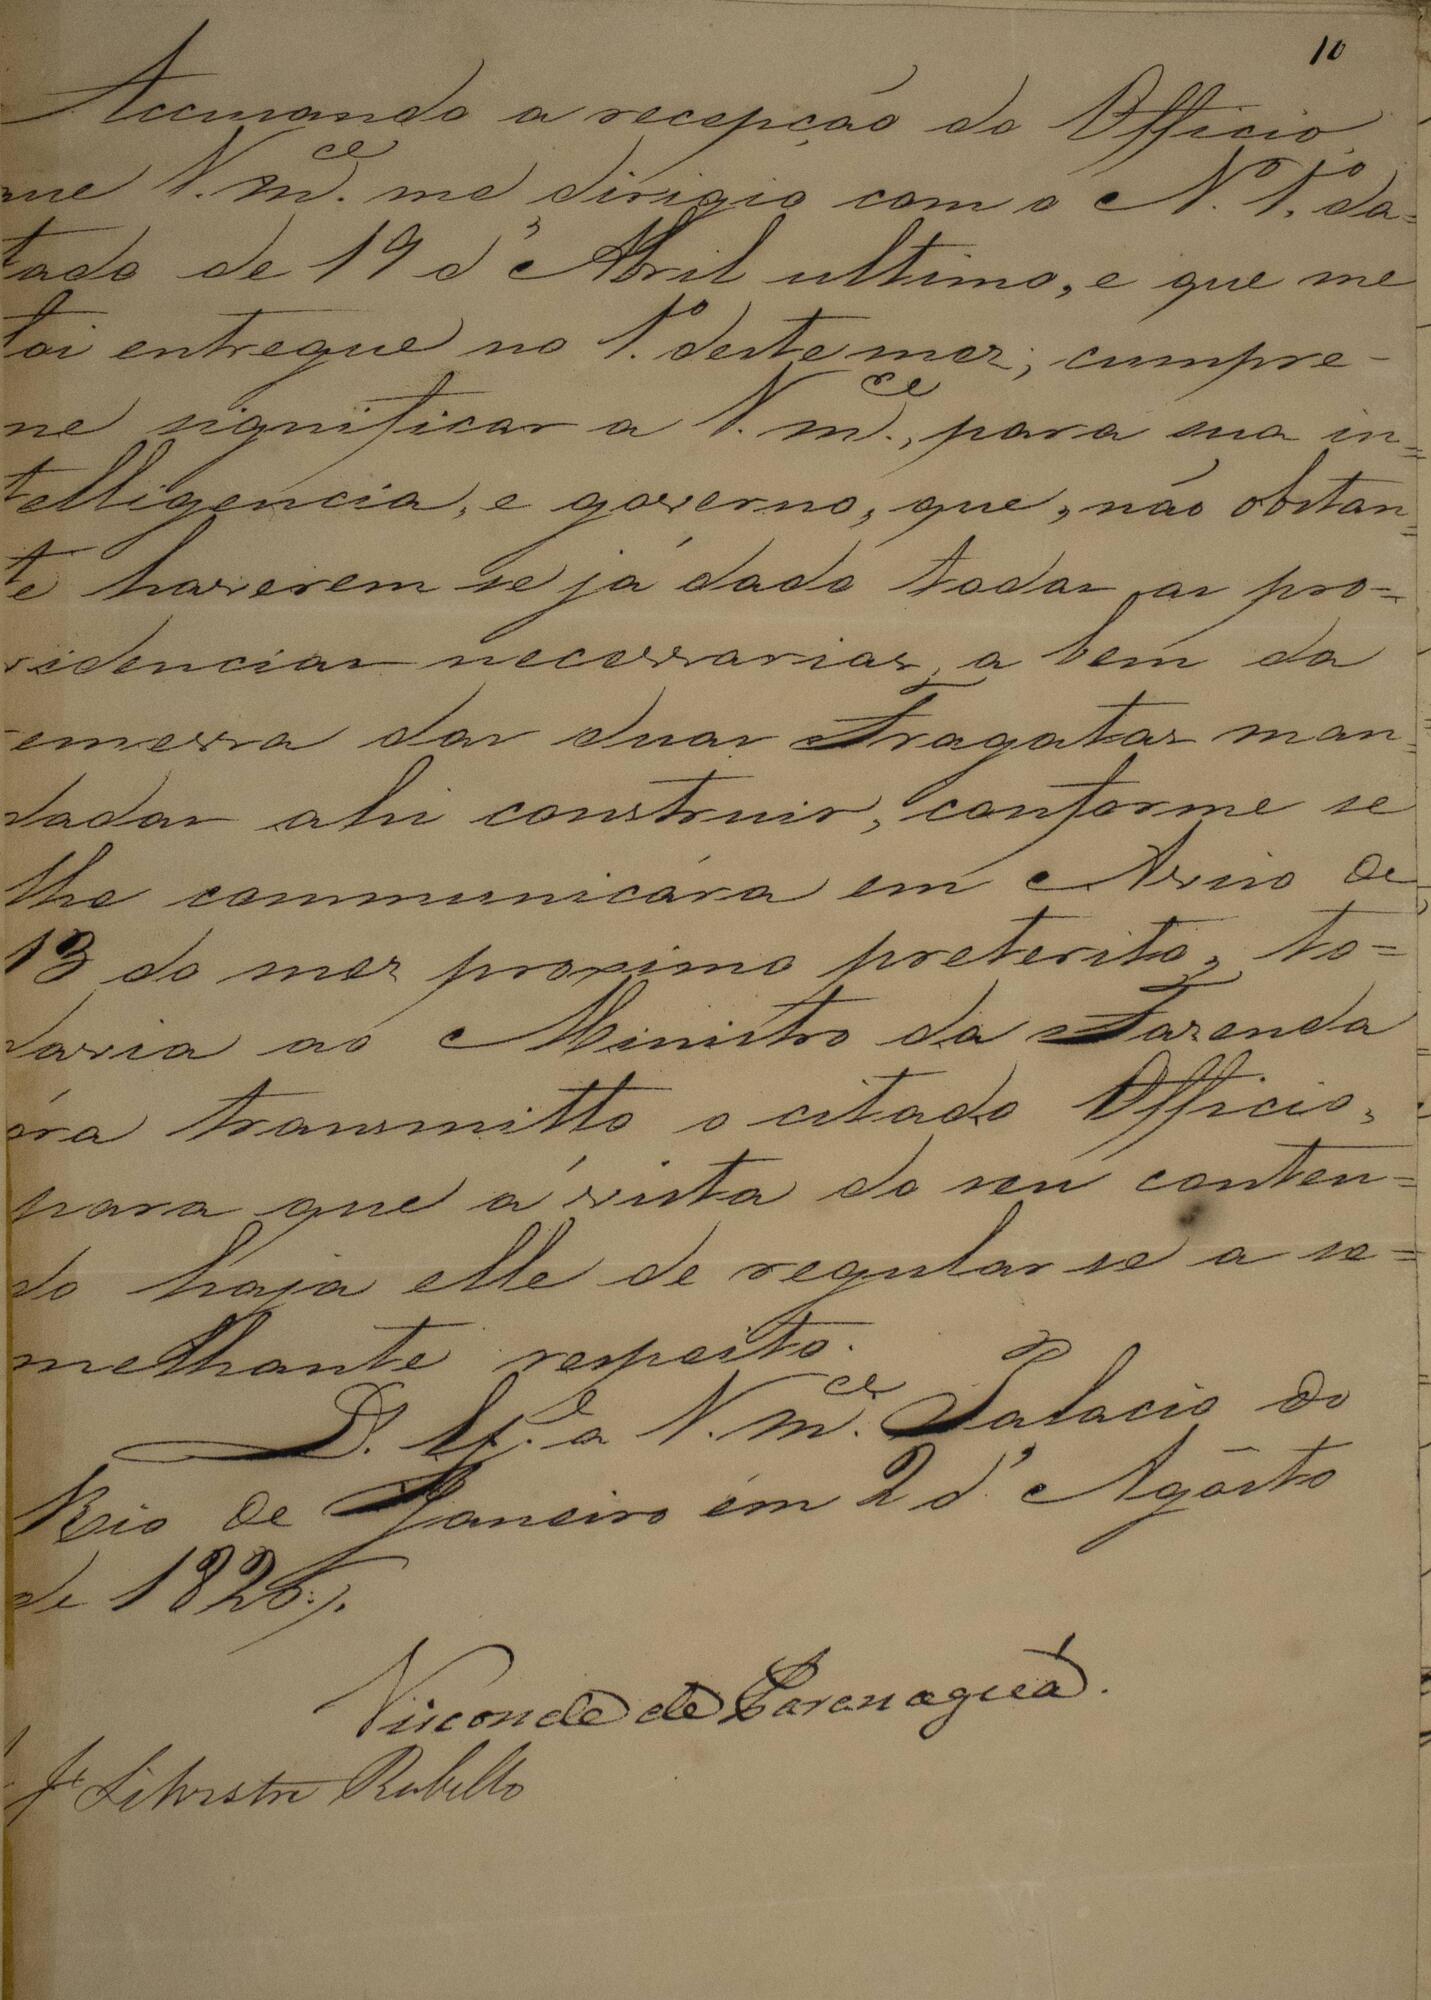 10
Accusando a recepção do Officio,
que V. m.ce me dirigio com o N.º 1.º da=
tado de 19 d'Abril ultimo, e que me
foi entregue no 1.º deste mez; cumpre-
me significar a V. m.ce, para sua in=
telligencia, e governo, que, não obstan=
te haverem se já dado todas as pro=
videncias necessarias, a bem da
remessa das duas Fragatas man=
dadas ahi construir, conforme se
lhe communicára em Aviso de
13 do mez proximo preterito, to=
davia ao Ministro da Fazenda
óra transmitto o citado Officio,
para que á vista do seu conteu=
do haja elle de regular se a se=
melhante respeito.
D. G.e a V. m.ce Palacio do
Rio de Janeiro em 2 d'Agosto
de 1826.
Visconde de Paranaguá.
Silvestre Rebello